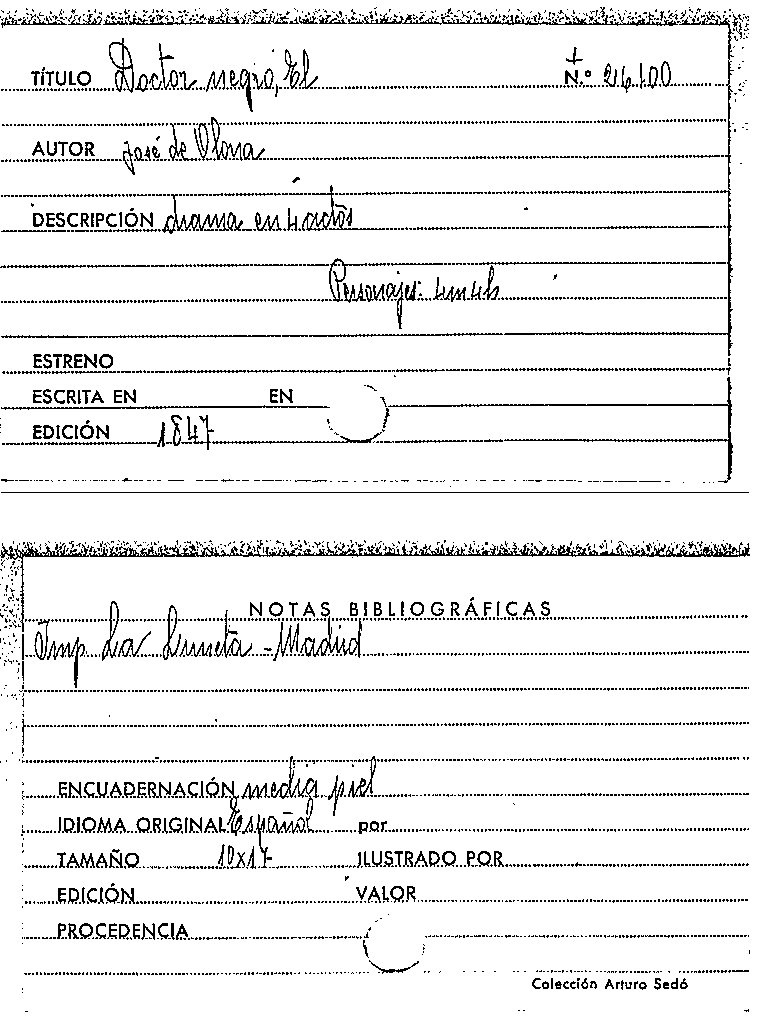 TÍTULO Doctor negro, El N.º 26.100
AUTOR José de Olona
DESCRIPCIÓN drama en 4 actos
Personajes: 4m 4h
ESTRENO
ESCRITA EN EN
EDICIÓN 1847
NOTAS BIBLIOGRÁFICAS
Imp La Luneta - Madrid
ENCUADERNACIÓN media piel
IDIOMA ORIGINAL Español por
TAMAÑO 10x17 ILUSTRADO POR
EDICIÓN VALOR
PROCEDENCIA
Colección Arturo Sedó